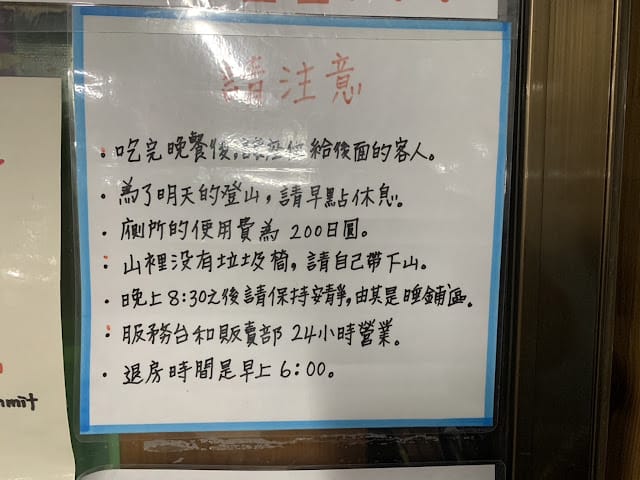 請注意
・吃完晚餐後，讓座位給後面的客人。
・為了明天的登山，請早點休息。
・廁所的使用費為 200日圓。
・山裡没有垃圾桶，請自己帶下山。
・晚上8:30後請保持安靜，由其是睡鋪區。
・服務台和販賣部 24小時營業。
・退房時間是早上 6:00。
mmit